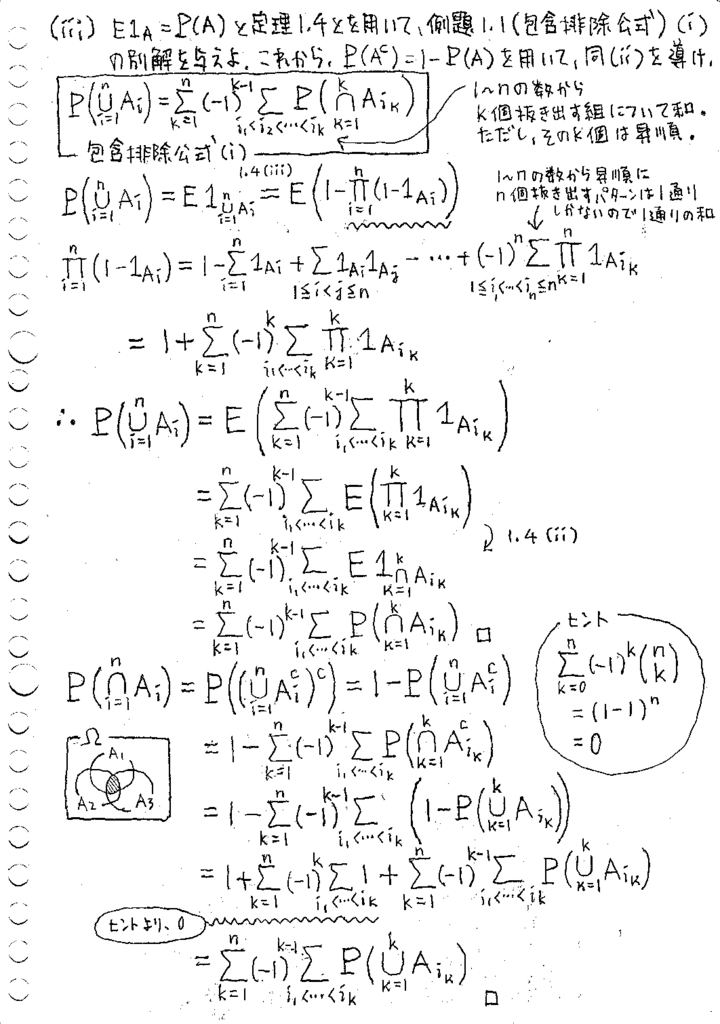 (iii) E1_A = P(A) と定理1.4とを用いて、例題1.1(包含排除公式)(i)
の別解を与えよ。これから、P(A^c)=1-P(A)を用いて、同(ii)を導け.
P(∪_{i=1}^{n} A_i) = Σ_{k=1}^{n} (-1)^{k-1} Σ_{i_1<i_2<…<i_k} P(∩_{k=1}^{k} A_{i_k})
包含排除公式(i)
1~nの数から
k個抜き出す組について和。
ただし、そのk個は昇順。
P(∪_{i=1}^{n} A_i) = E1_{∪_{i=1}^{n} A_i} = E(1-∏_{i=1}^{n}(1-1_{A_i}))
1.4(iii)
1~nの数から昇順に
n個抜き出すパターンは1通り
しかないので1通りの和
∏_{i=1}^{n}(1-1_{A_i}) = 1-Σ_{i=1}^{n} 1_{A_i} + Σ_{1≤i<j≤n} 1_{A_i}1_{A_j} - … + (-1)^n Σ_{1≤i_1<…<i_n≤n} ∏_{k=1}^{n} 1_{A_{i_k}}
= 1 + Σ_{k=1}^{n} (-1)^k Σ_{i_1<…<i_k} ∏_{k=1}^{k} 1_{A_{i_k}}
∴ P(∪_{i=1}^{n} A_i) = E(Σ_{k=1}^{n} (-1)^{k-1} Σ_{i_1<…<i_k} ∏_{k=1}^{k} 1_{A_{i_k}})
= Σ_{k=1}^{n} (-1)^{k-1} Σ_{i_1<…<i_k} E(∏_{k=1}^{k} 1_{A_{i_k}})
1.4(ii)
= Σ_{k=1}^{n} (-1)^{k-1} Σ_{i_1<…<i_k} E1_{∩_{k=1}^{k} A_{i_k}}
= Σ_{k=1}^{n} (-1)^{k-1} Σ_{i_1<…<i_k} P(∩_{k=1}^{k} A_{i_k}) □
ヒント
Σ_{k=0}^{n} (-1)^k (n k)
= (1-1)^n
= 0
P(∩_{i=1}^{n} A_i) = P((∪_{i=1}^{n} A_i^c)^c) = 1-P(∪_{i=1}^{n} A_i^c)
Ω
A1
A2 A3
= 1-Σ_{k=1}^{n} (-1)^{k-1} Σ_{i_1<…<i_k} P(∩_{k=1}^{k} A_{i_k}^c)
= 1-Σ_{k=1}^{n} (-1)^{k-1} Σ_{i_1<…<i_k} (1-P(∪_{k=1}^{k} A_{i_k}))
= 1+Σ_{k=1}^{n} (-1)^k Σ_{i_1<…<i_k} 1 + Σ_{k=1}^{n} (-1)^{k-1} Σ_{i_1<…<i_k} P(∪_{k=1}^{k} A_{i_k})
ヒントより、0
= Σ_{k=1}^{n} (-1)^{k-1} Σ_{i_1<…<i_k} P(∪_{k=1}^{k} A_{i_k}) □